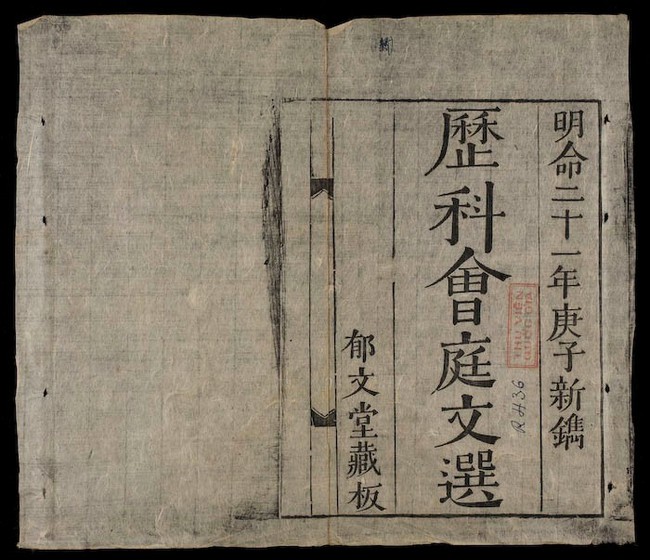 明命二十一年庚子新鐫
歷科會庭文選
郁文堂藏板
THƯ VIỆN
QUỐC GIA
R.436